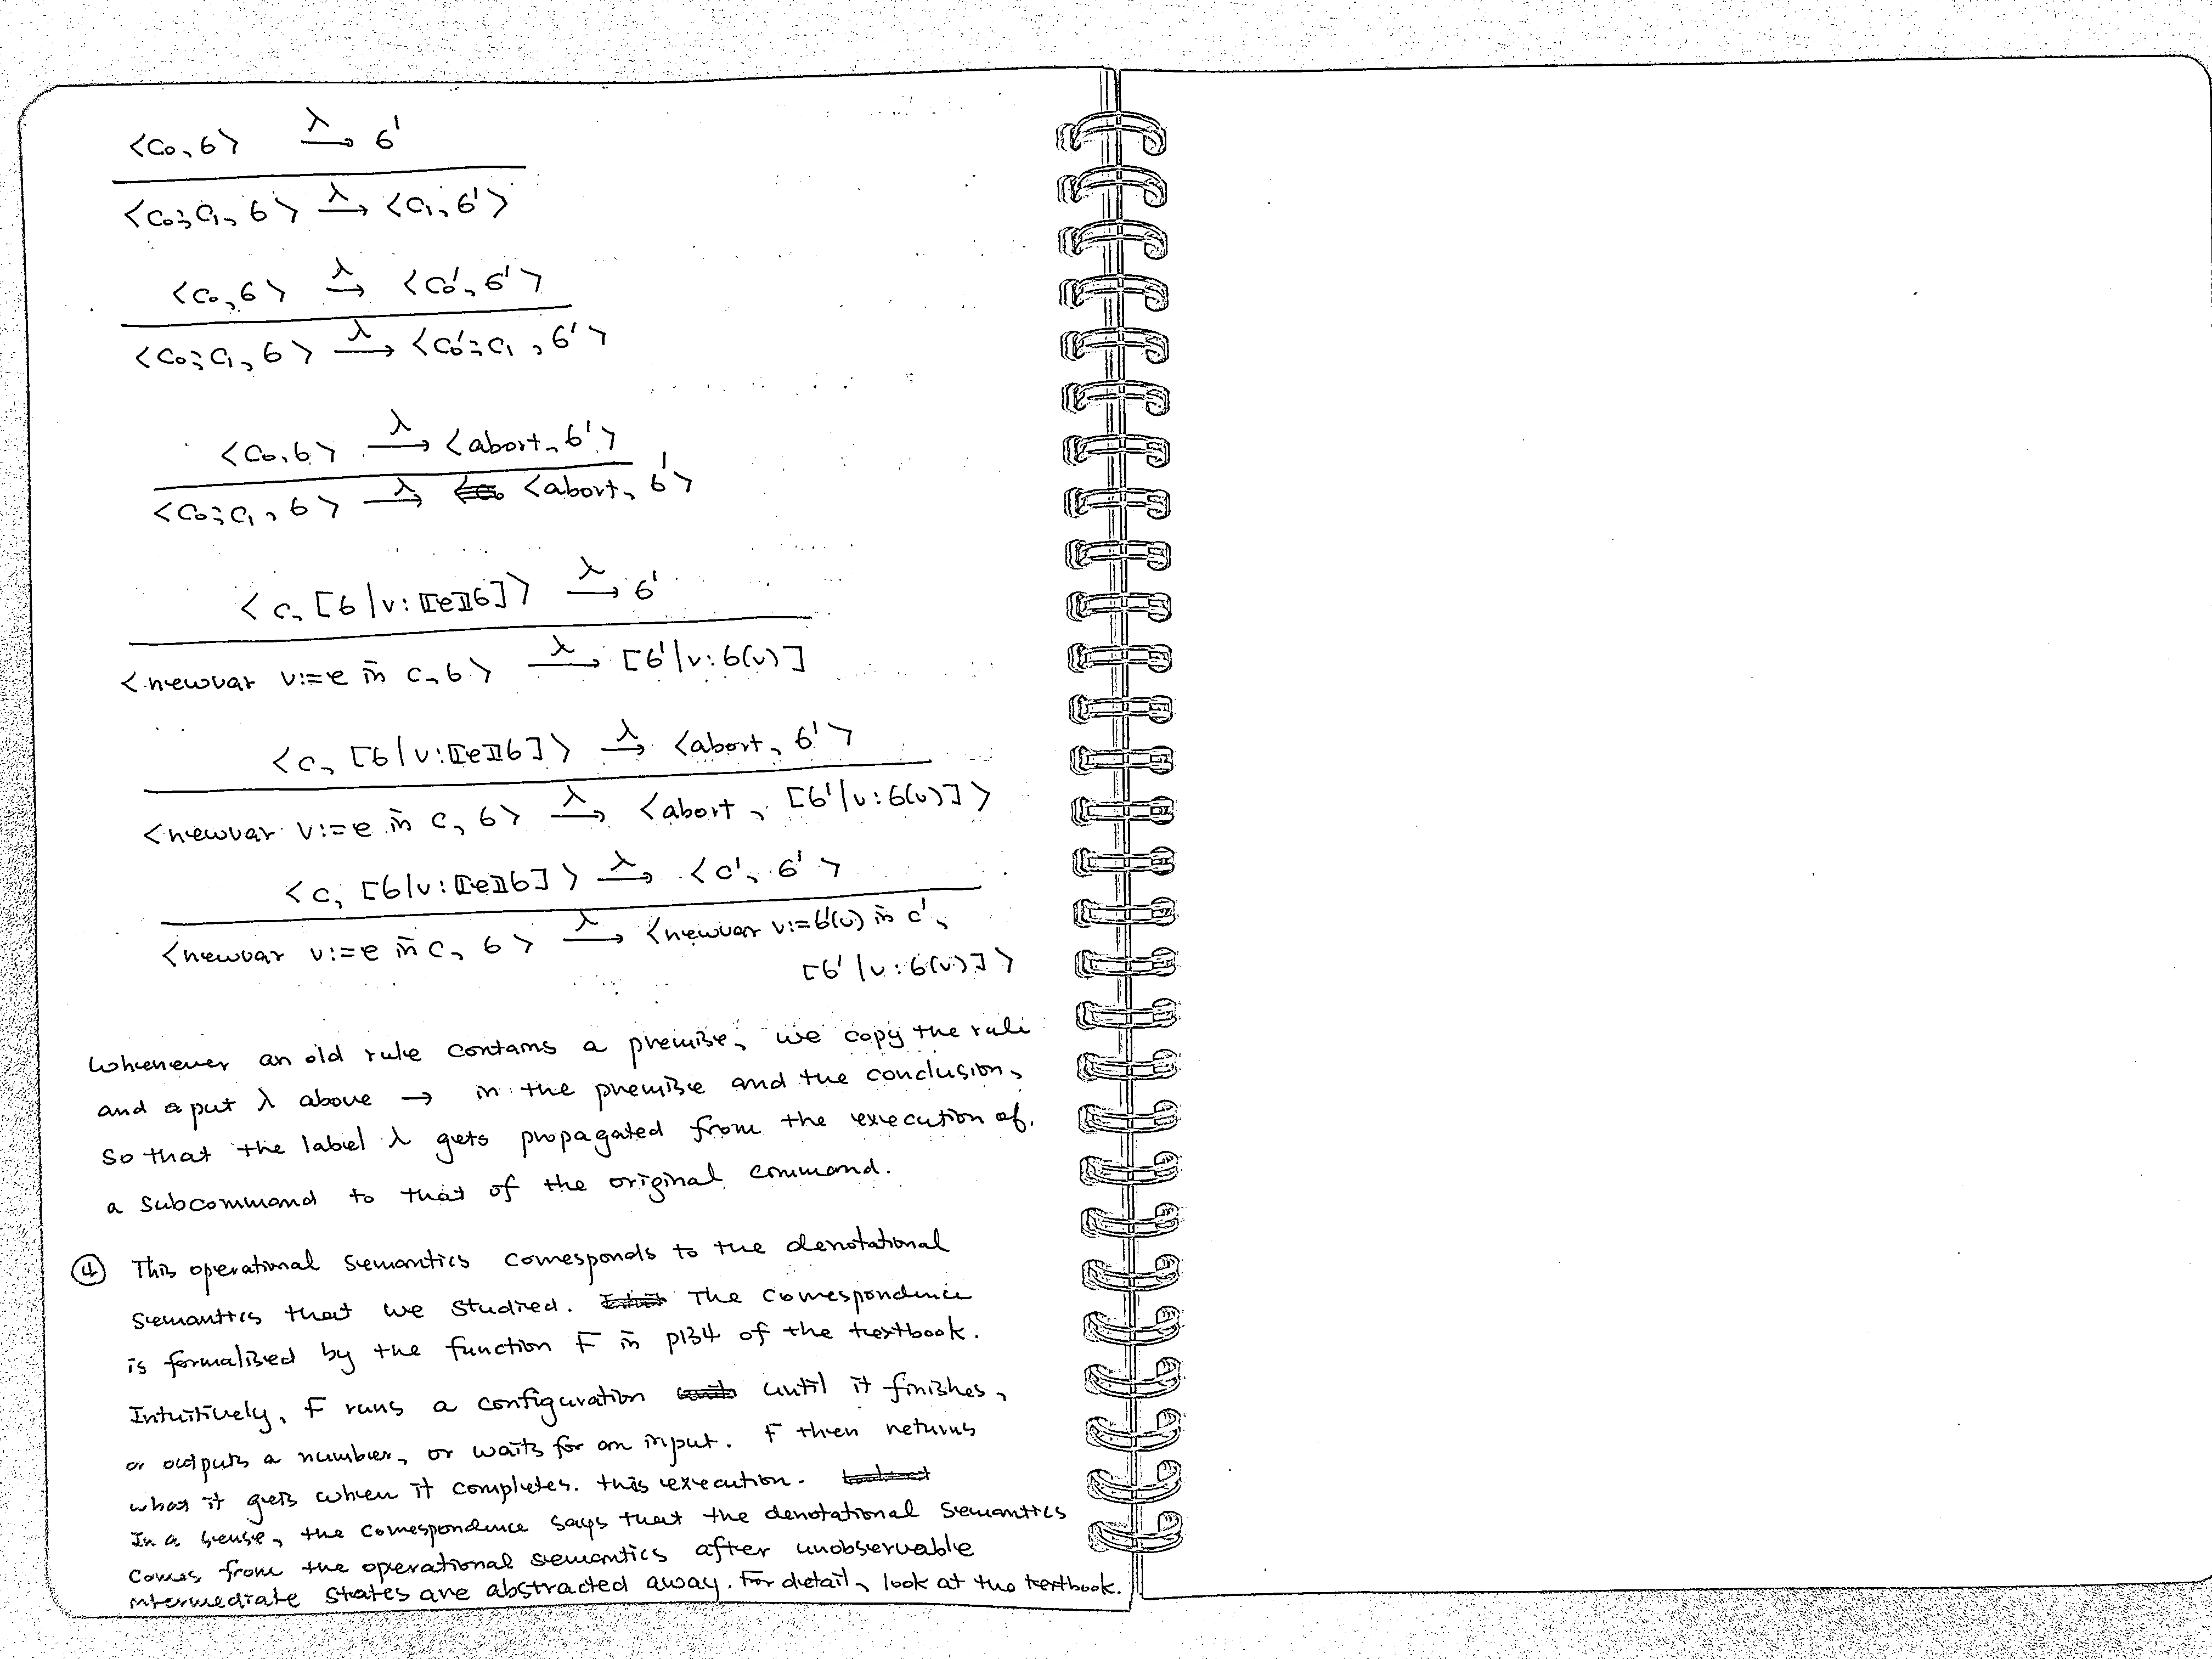 <c₀, σ> —λ→ σ'
<c₀;c₁, σ> —λ→ <c₁, σ'>
<c₀, σ> —λ→ <c₀', σ'>
<c₀;c₁, σ> —λ→ <c₀';c₁, σ'>
<c₀, σ> —λ→ <abort, σ'>
<c₀;c₁, σ> —λ→ <abort, σ'>
<c, [σ|v:⟦e⟧σ]> —λ→ σ'
<newvar v:=e in c, σ> —λ→ [σ'|v:σ(v)]
<c, [σ|v:⟦e⟧σ]> —λ→ <abort, σ'>
<newvar v:=e in c, σ> —λ→ <abort, [σ'|v:σ(v)]>
<c, [σ|v:⟦e⟧σ]> —λ→ <c', σ'>
<newvar v:=e in c, σ> —λ→ <newvar v:=σ'(v) in c',
[σ'|v:σ(v)]>
Whenever an old rule contains a premise, we copy the rule
and a put λ above → in the premise and the conclusion,
so that the label λ gets propagated from the execution of
a subcommand to that of the original command.
④ This operational semantics corresponds to the denotational
semantics that we studied. The correspondence
is formalised by the function F in p134 of the textbook.
Intuitively, F runs a configuration until it finishes,
or outputs a number, or waits for an input. F then returns
what it gets when it completes this execution.
In a sense, the correspondence says that the denotational semantics
comes from the operational semantics after unobservable
intermediate states are abstracted away. For detail, look at the textbook.